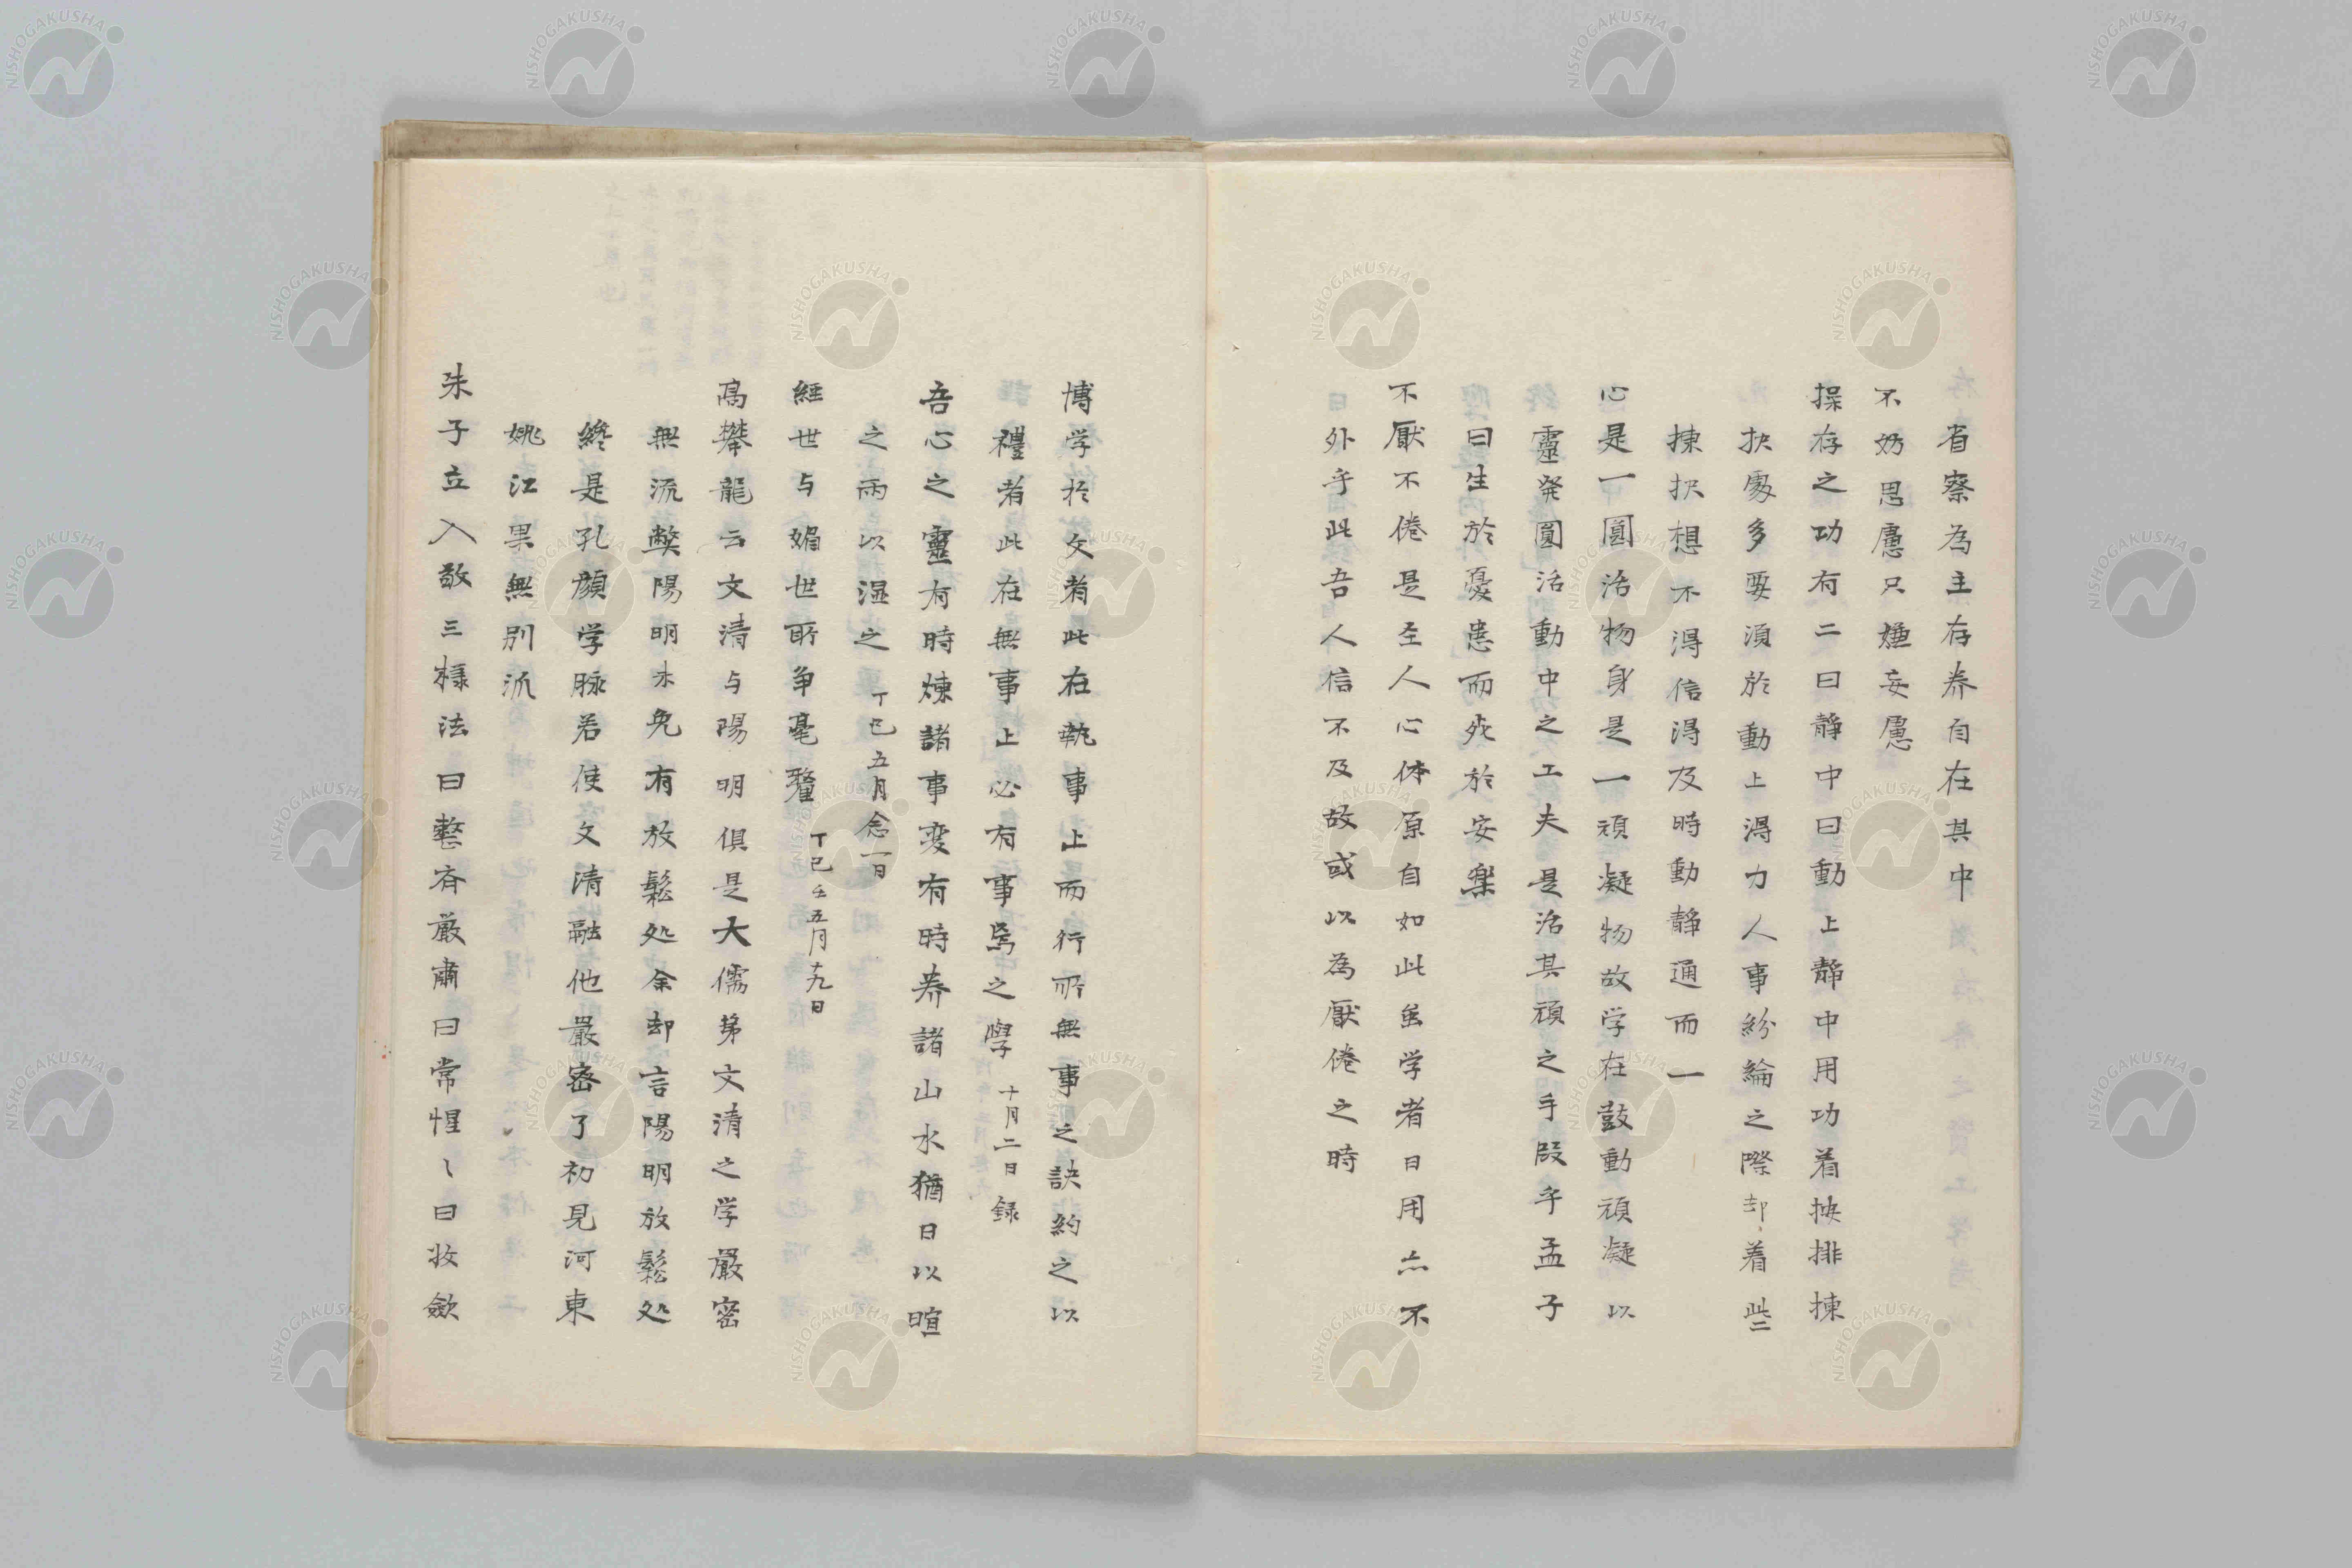 省察為主存养自在其中
不妨思慮只嫌妄慮
操存之功有二曰靜中曰動上靜中用功着按排揀
択處多要須於動上得力人事紛綸之際却着些
揀択想不得信得及時動靜通而一
心是一圓活物身是一頑凝物故学在鼓動頑凝以
靈発圓活動中之工夫是活其頑之手段乎孟子
曰生於憂患而死於安楽
不厭不倦是至人心体原自如此虽学者日用亦不
日外乎此吾人信不及故或以為厭倦之時
博学於文者此在執事上而行所無事之訣約之以
禮者此在無事上必有事焉之學 十月二日録
吾心之靈有時煉諸事变有時养諸山水猶日以暄
之雨以湿之 丁巳五月念一日
經世与媚世所争毫釐 丁巳壬五月十九日
高攀龍云文清与陽明俱是大儒第文清之学嚴密
無流弊陽明未免有放鬆処余却言陽明放鬆処
終是孔顔学脉若使文清融他嚴密了初見河東
姚江果無別派
朱子立入敬三様法曰整齐厳肅曰常惺〻曰收斂
NISHOGAKUSHA